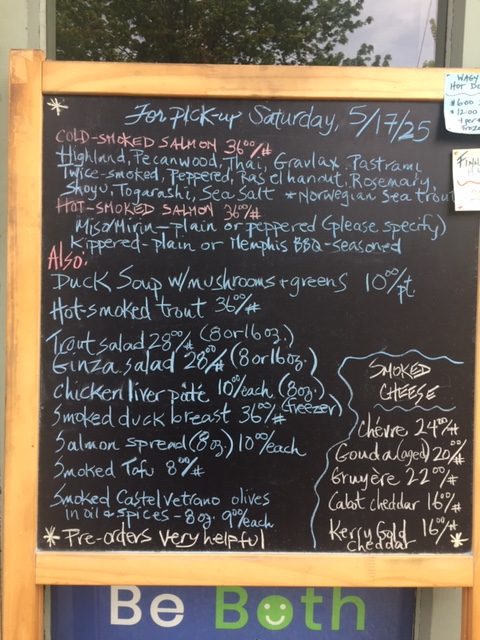 For pick-up Saturday, 5/17/25
COLD-SMOKED SALMON 36⁰⁰/#
Highland, Pecanwood, Thai, Gravlax, Pastrami,
Twice-smoked, Peppered, Ras el hanout, Rosemary,
Shoyu, Togarashi, Sea Salt *Norwegian Sea trout
HOT-SMOKED SALMON 36⁰⁰/#
Miso/Mirin-plain or peppered (please specify)
Kippered-plain or Memphis BBQ-seasoned
Also:
Duck Soup w/mushrooms + greens 10⁰⁰/pt.
Hot-smoked trout 36⁰⁰/#
Trout salad 28⁰⁰/# (8 or 16 oz.)
Ginza salad 28⁰⁰/# (8 or 16 oz.)
Chicken liver pâté 10⁰⁰/each (8oz.)
Smoked duck breast 36⁰⁰/# (freezer)
Salmon spread (8oz) 10⁰⁰/each
Smoked Tofu 8⁰⁰/#
Smoked Castelvetrano olives
in oil & spices - 8oz. 9⁰⁰/each
*Pre-orders very helpful
SMOKED
CHEESE
Chèvre 24⁰⁰/#
Gouda (aged) 20⁰⁰/#
Gruyère 22⁰⁰/#
Cabot cheddar 16⁰⁰/#
Kerry Gold 16⁰⁰/#
cheddar *
WAGY
HOT DO
$6.00
$12.00
Be Both